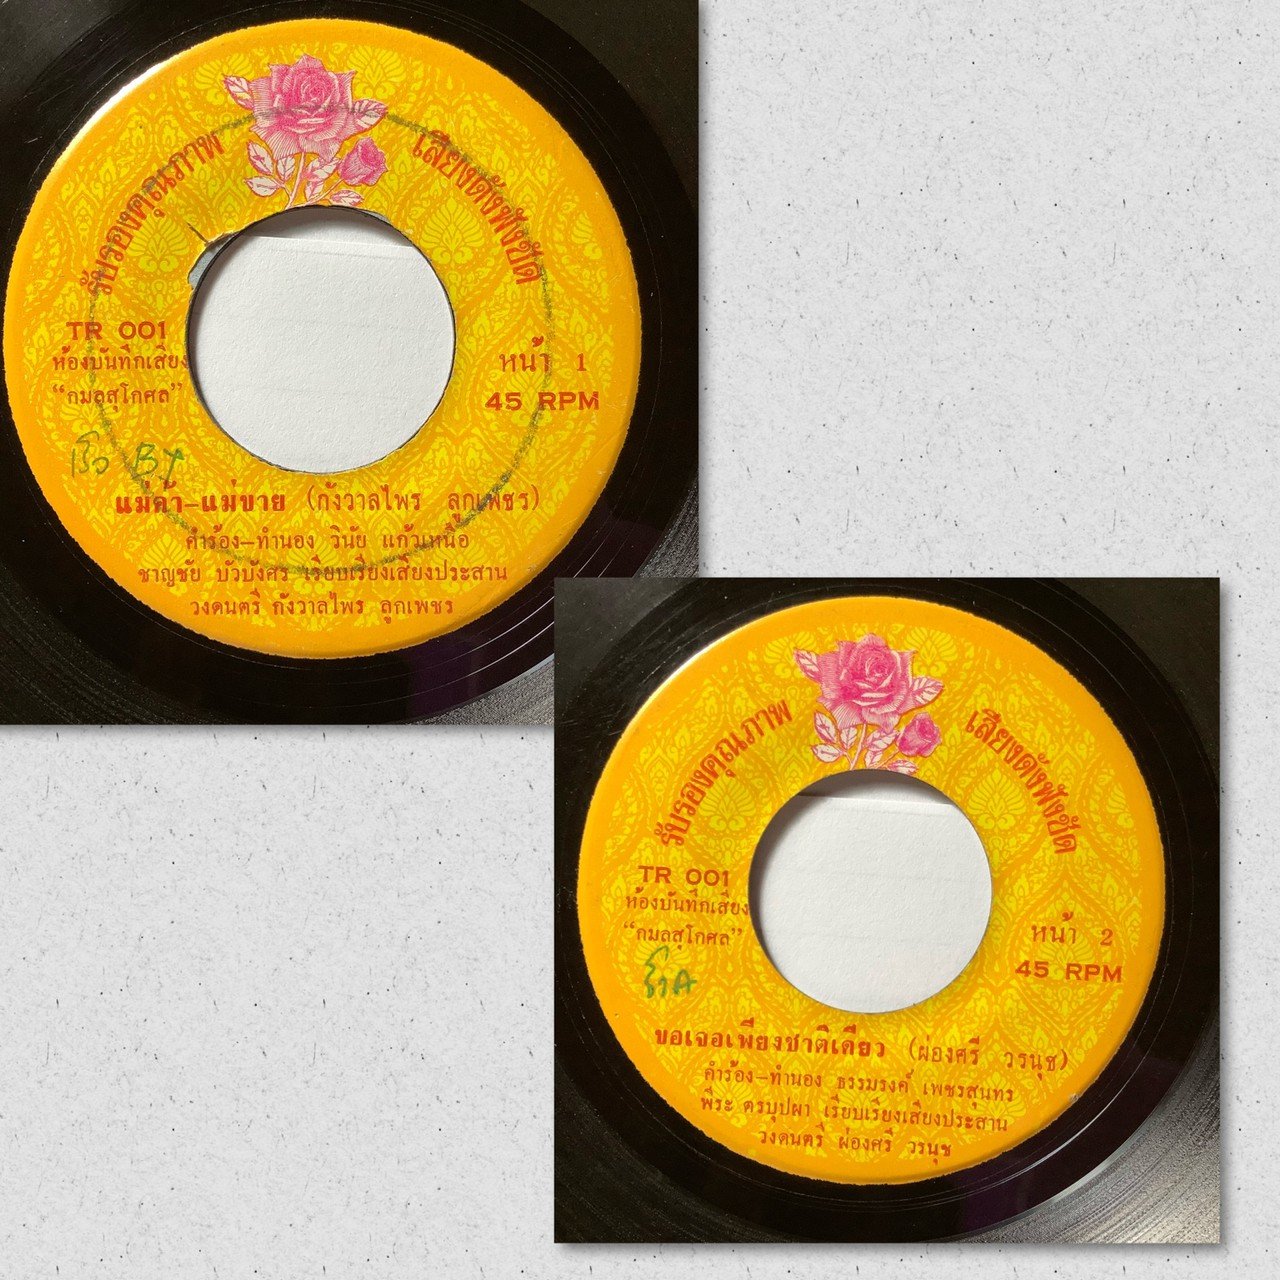 รับรองคุณภาพ เสียงดังฟังชัด
TR 001
ห้องบันทึกเสียง
“กมลสุโกศล”
หน้า 1
45 RPM
แม่ค้า–แม่ขาย (กังวาลไพร ลูกเพชร)
คำร้อง–ทำนอง วินัย แก้วเหนือ
ชาญชัย บัวบังศร เรียบเรียงเสียงประสาน
วงดนตรี กังวาลไพร ลูกเพชร
รับรองคุณภาพ เสียงดังฟังชัด
TR 001
ห้องบันทึกเสียง
“กมลสุโกศล”
หน้า 2
45 RPM
ขอเจอเพียงชาติเดียว (ผ่องศรี วรนุช)
คำร้อง–ทำนอง ธรรมรงค์ เพชรสุนทร
พีระ ตรบุปผา เรียบเรียงเสียงประสาน
วงดนตรี ผ่องศรี วรนุช